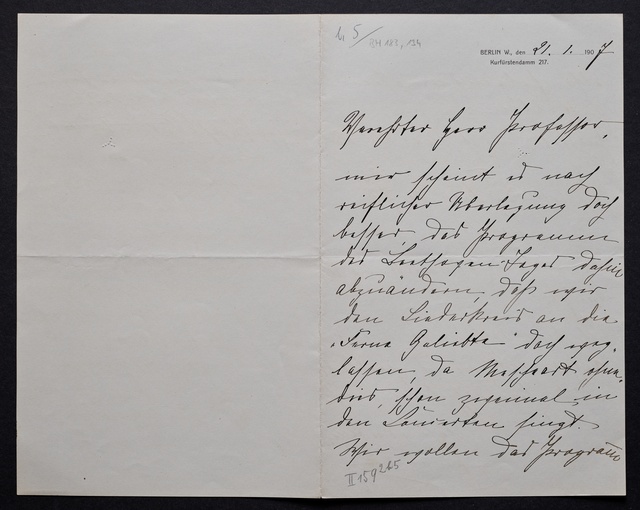 4 5/
BH 183, 134
BERLIN W., den 21. 1. 1907
Kurfürstendamm 217.
Verehrter Herr Professor,
mir scheint es nach
reiflicher Überlegung doch
besser, das Programm
des Beethoven-Tages dahin
abzuändern, daß wir
den Liederkreis an die
"Ferne Geliebte" doch weg-
lassen, da Messchaert ohne-
dies schon zweimal in
den Concerten singt.
Wir wollen das Programm
II 159 265